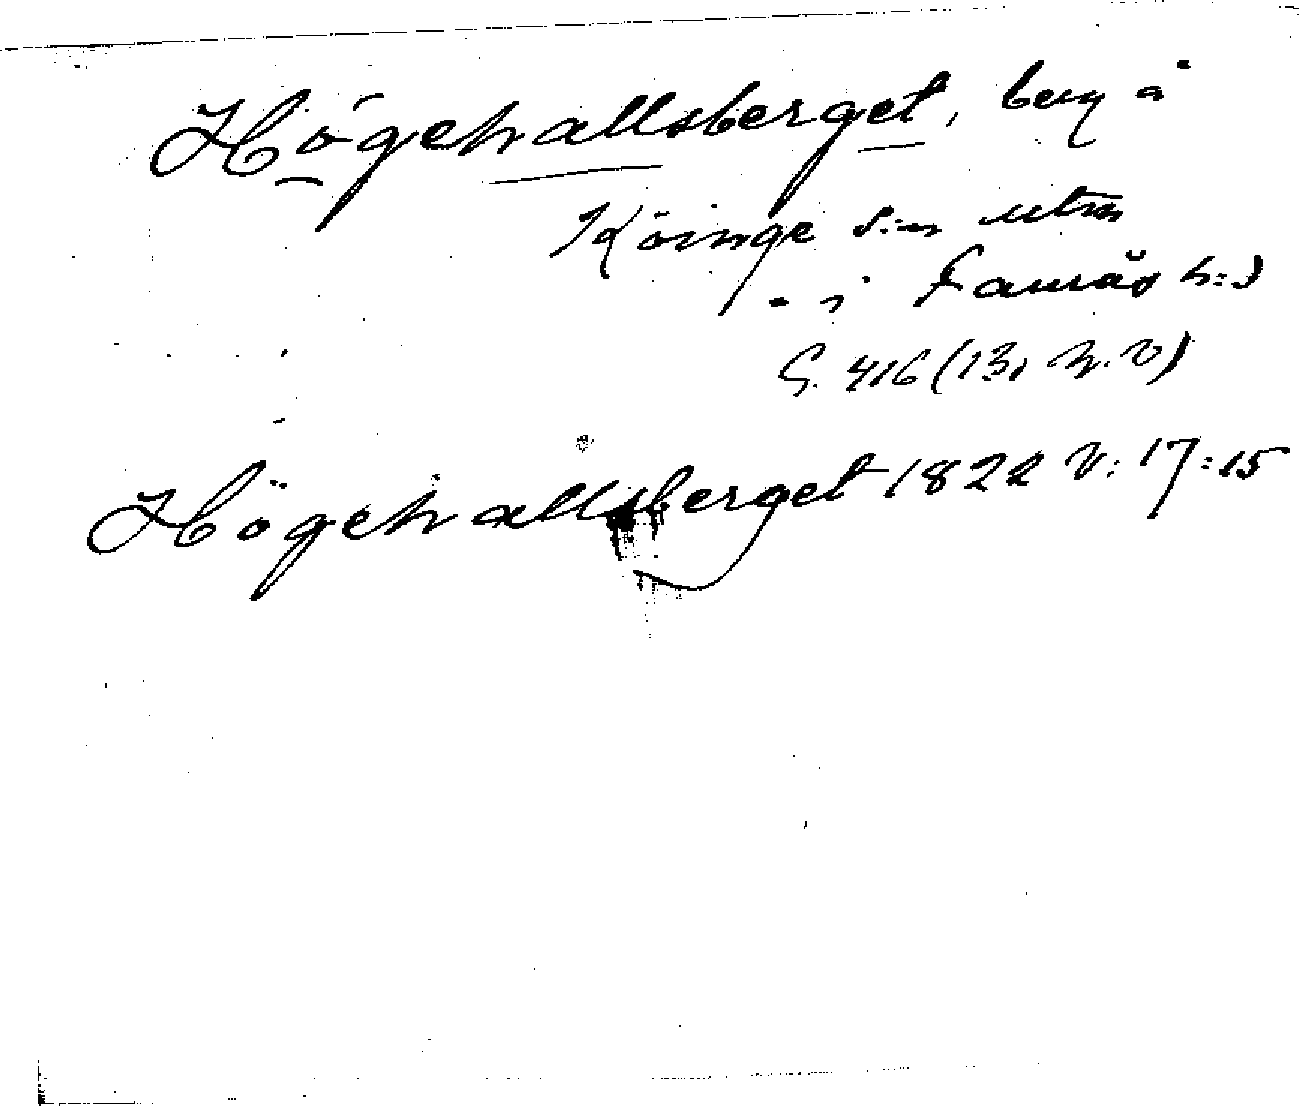 Högehallsberget, berg å
Köinge s:ns utm
- i Faurås h:d
G. 416 (13, N.V)
Högehallsberget 1822 V: 17:15